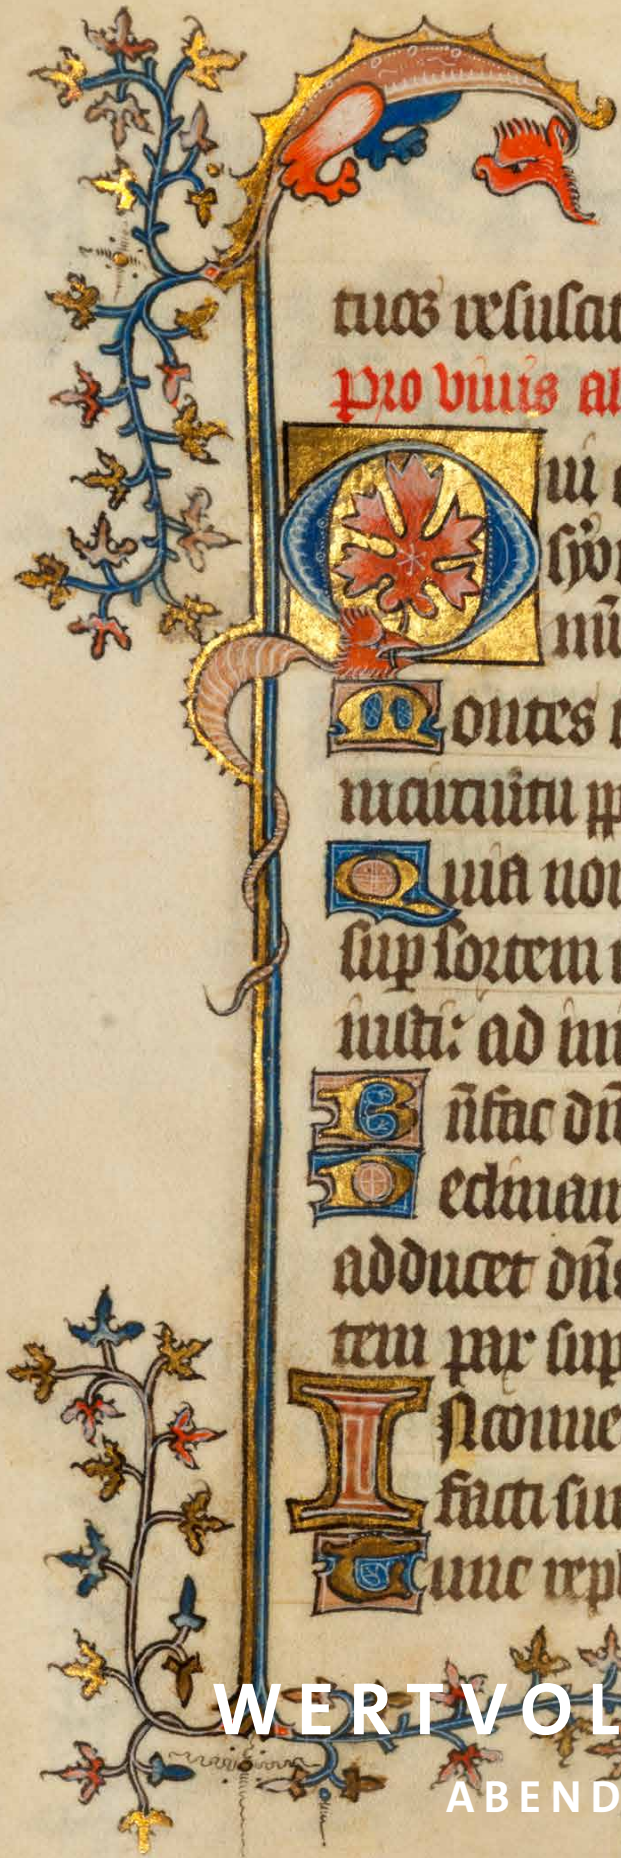 tuos resuscit
Pro viuis al
Qui
mū
Montes
incircuitu pp
Quia non
sup sortem
iusti: ad in
Bn̄fac dn̄
Declinan
adducet dn̄s
tem pax sup
INconue
facti su
Tunc repl
WERTVOL
ABEND